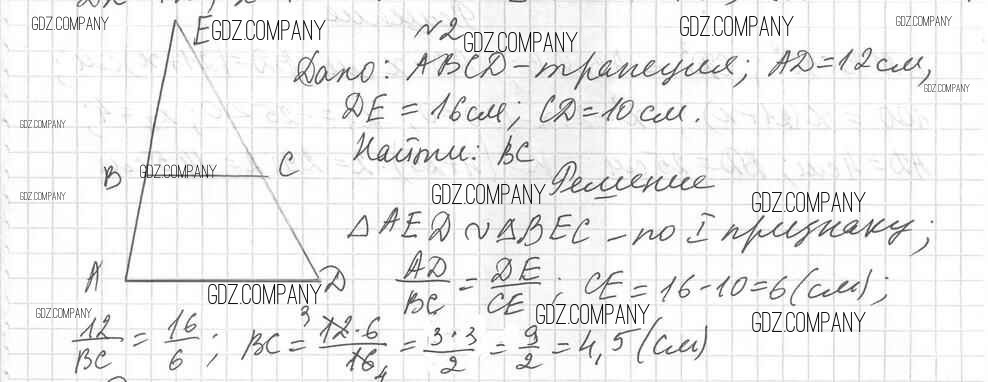 №2
Дано: ABCD – трапеция; AD = 12 см,
DE = 16 см; CD = 10 см.
Найти: BC
Решение
△AED ~ △BEC – по I признаку;
AD/BC = DE/CE; CE = 16 - 10 = 6 (см);
12/BC = 16/6; BC = 12·6/16 = 3·3/2 = 9/2 = 4,5 (см)
E
B
C
A
D
3
4
GDZ.COMPANY
GDZ.COMPANY
GDZ.COMPANY
GDZ.COMPANY
GDZ.COMPANY
GDZ.COMPANY
GDZ.COMPANY
GDZ.COMPANY
GDZ.COMPANY
GDZ.COMPANY
GDZ.COMPANY
GDZ.COMPANY
GDZ.COMPANY
GDZ.COMPANY